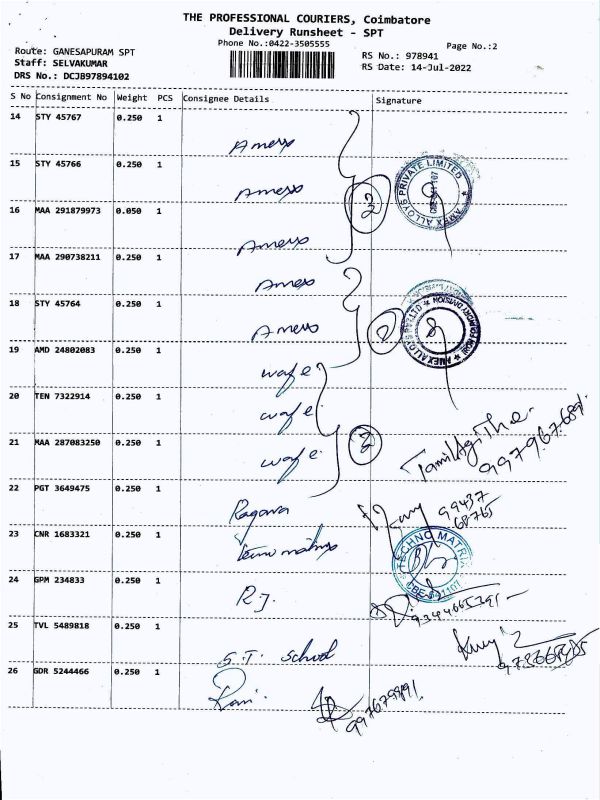 THE PROFESSIONAL COURIERS, Coimbatore
Delivery Runsheet - SPT
Phone No.:0422-3505555
Page No.:2
Route: GANESAPURAM SPT
Staff: SELVAKUMAR
DRS No.: DCJB97894102
RS No.: 978941
RS Date: 14-Jul-2022
S No Consignment No Weight PCS Consignee Details Signature
14 STY 45767 0.250 1
Amexs
15 STY 45766 0.250 1
Amexs
2
AMEX ALLOYS PRIVATE LIMITED
16 MAA 291879973 0.050 1
Amexs
17 MAA 290738211 0.250 1
Amexs
18 STY 45764 0.250 1
Amexs
2
19 AMD 24802083 0.250 1
wafe
20 TEN 7322914 0.250 1
wafe
21 MAA 287083250 0.250 1
wafe
22 PGT 3649475 0.250 1
Ragava
99437
68765
23 CNR 1683321 0.250 1
TECHNO MATRIX
24 GPM 234833 0.250 1
R J.
25 TVL 5489818 0.250 1
S.T. School
26 GDR 5244466 0.250 1
Rani.